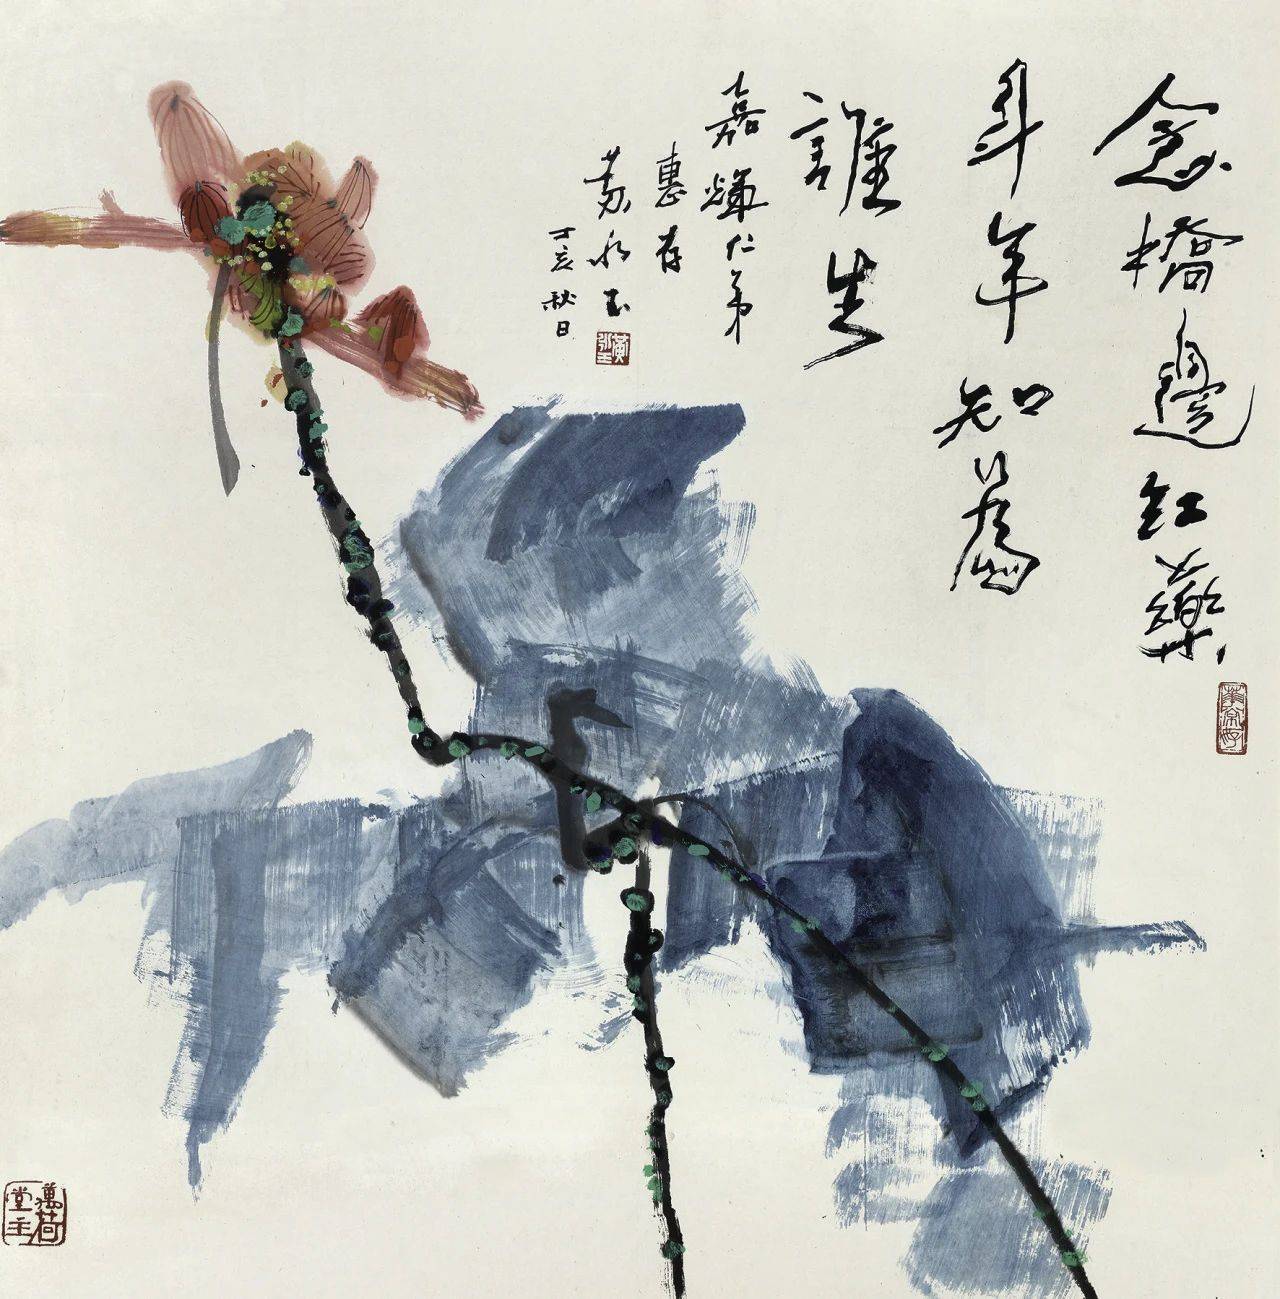 念橋邊紅藥
年年知為
誰生
嘉輝仁弟
惠存
黃永玉
丁亥秋日
黃永玉
萬荷堂主